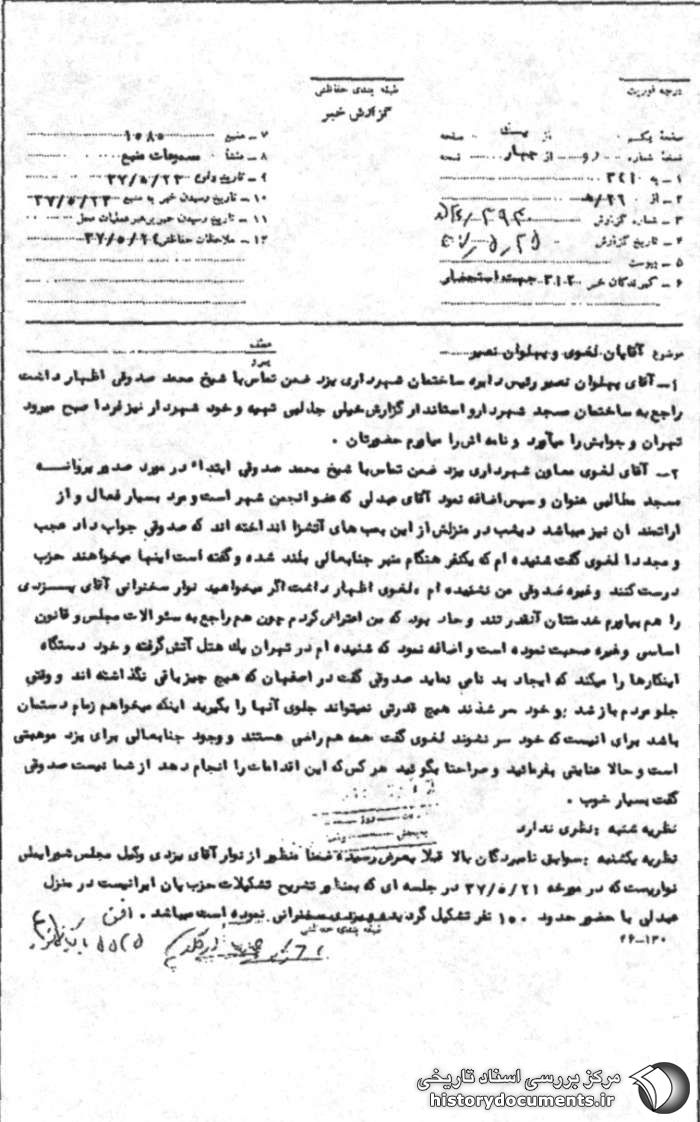 درجه فوریت
طبقه بندی حفاظتی
گزارش خبر
صفحه یکم از بیست صفحه
نسخه شماره دو از چهار نسخه
۱ ـ به ۳۴۱
۲ ـ از ۲۶/ه
۳ ـ شماره گزارش
۴ ـ تاریخ گزارش
۵ ـ پیوست
۶ ـ گیرندگان خبر ۳۱۲ جهت استحضار
۷ ـ منبع ۱۰۸۰
۸ ـ منشأ مسموعات منبع
۹ ـ تاریخ وقوع ۳۷/۵/۲۳
۱۰ ـ تاریخ رسیدن خبر به منبع ۳۷/۵/۲۳
۱۱ ـ تاریخ رسیدن خبر برهبر عملیات محل
۱۲ ـ ملاحظات حفاظتی
موضوع آقایان لغوی و پهلوان نصیر
عطف
پیرو
۱ـ آقای پهلوان نصیر رئیس دایره ساختمان شهرداری یزد ضمن تماس با شیخ محمد صدوقی اظهار داشت
راجع به ساختمان مسجد شهردار و استاندار گزارش خیلی جدلیی تهیه و خود شهردار نیز فردا صبح میرود
تهران و جوابش را میآورد و نامه اش را میاورم حضورتان .
۲ـ آقای لغوی معاون شهرداری یزد ضمن تماس با شیخ محمد صدوقی ابتداء در مورد صدور پروانه
مسجد مطالبی عنوان و سپس اضافه نمود آقای صدلی که عضو انجمن شهر است و مرد بسیار فعال و از
اراتمند ان نیز میباشد دیشب در منزلش از این بمب های آتشزا انداخته اند که صدوقی جواب داد عجب
و مجددا لغوی گفت شنیده ام که یکنفر هنگام منبر جنابعالی بلند شده و گفته است اینها میخواهند حزب
درست کنند و غیره صدوقی من نشنیده ام ، لغوی اظهار داشت اگر میخواهید نوار سخنرانی آقای یـــزدی
را هم بیاورم خدمتتان آنقدر تند و حاد بود که من اعتراض کردم چون هم راجع به سئوالات مجلس و قانون
اساسی وغیره صحبت نموده است و اضافه نمود که شنیده ام در تهران یك هتل آتش گرفته و خود دستگاه
اینکارها را میکند که ایجاد بد نامی نماید صدوقی گفت در اصفهان که هیچ چیز باقی نگذاشته اند و وقتی
جلو مردم باز شد و خود سر شدند هیچ قدرتی نمیتواند جلوی آنها را بگیرید اینکه میخواهم زمام دستمان
باشد برای انیست که خود سر نشوند لغوی گفت همه هم راضی هستند و وجود جنابعالی برای یزد موهبتی
است و حالا عنایتی بفرمائید و صراحتا بگوئید هر کس که این اقدامات را انجام دهد از شما نیست صدوقی
گفت بسیار خوب .
نظریه شنبه : نظری ندارد
نظریه یکشنبه : سوابق نامبردگان بالا قبلا بعرض رسیده ضمنا منظور از نوار آقای یزدی وکیل مجلس شورایملی
نواریست که در مورخه ۳۷/۵/۲۱ در جلسه ای که بمنظور تشریح تشکیلات حزب پان ایرانیست در منزل
صدلی با حضور حدود ۱۵۰ نفر تشکیل گردیده سخنرانی نموده است میباشد .
طبقه بندی حفاظتی
۲۶-۱۳۰
مرکز بررسی اسناد تاریخی
historydocuments.ir